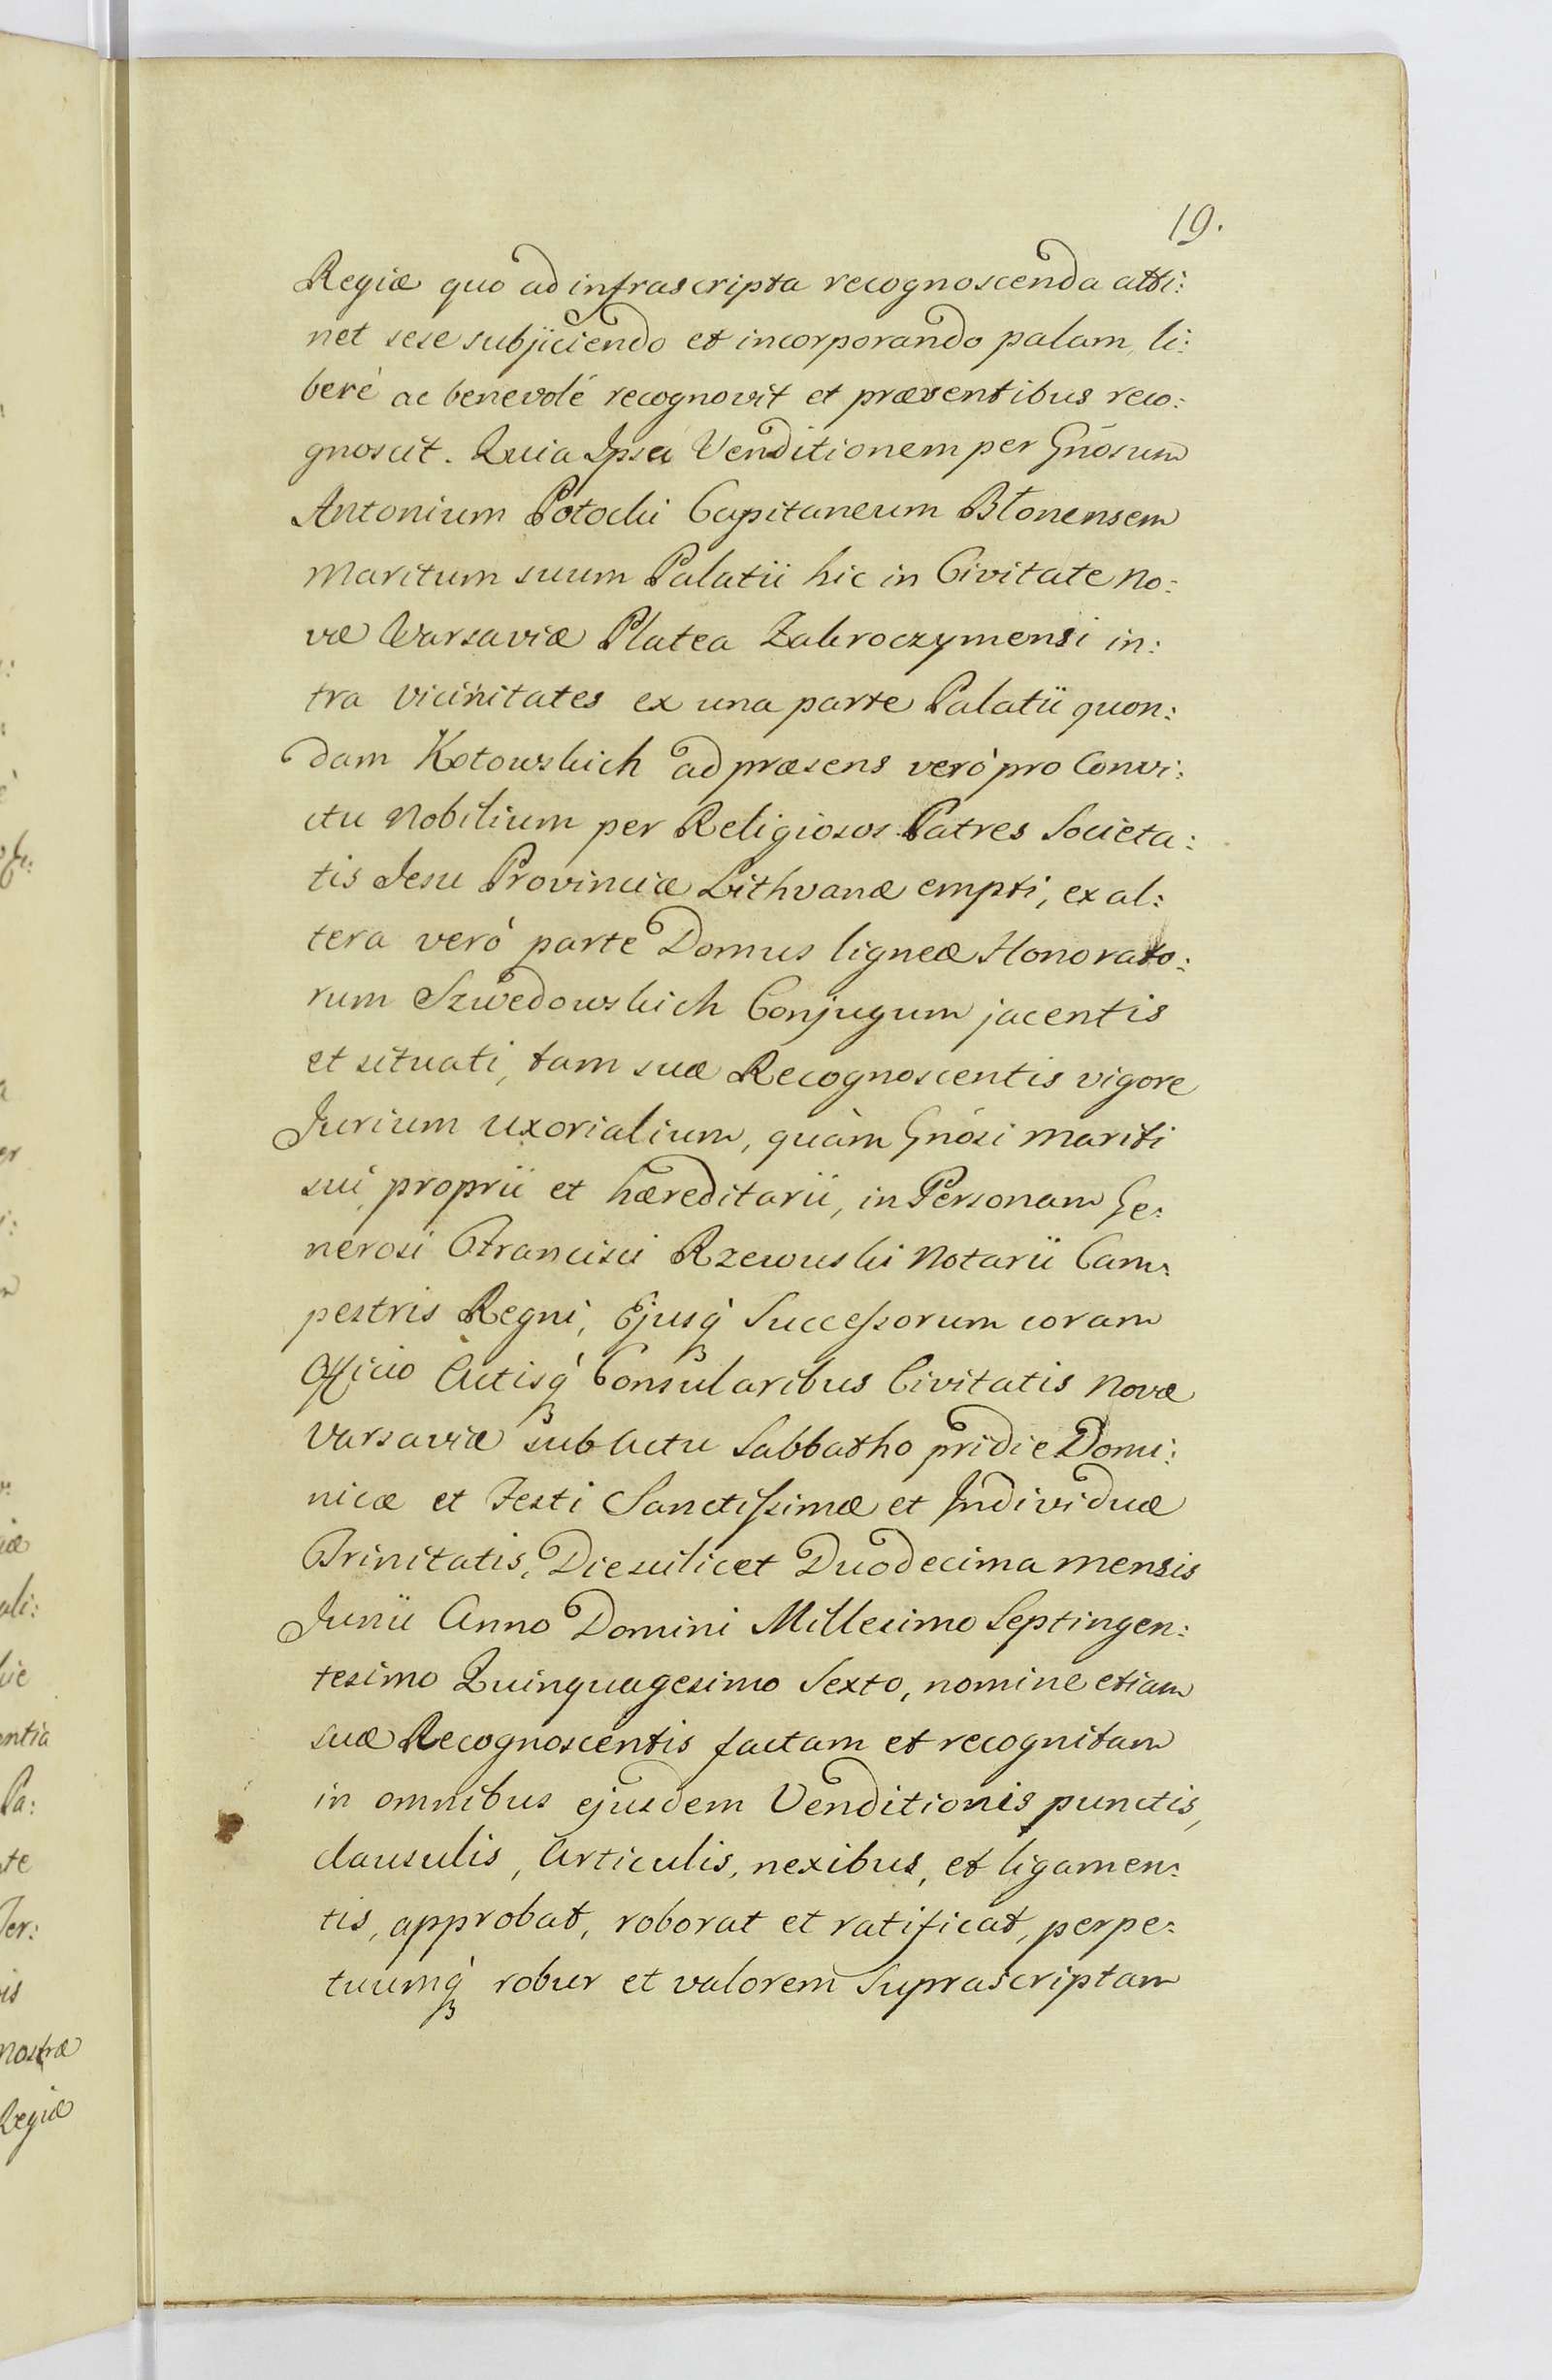 19.
Regiæ quo ad infrascripta recognoscenda atti:
net sese subjiciendo et incorporando palam, li:
beré ac benevolé recognovit et præsentibus reco:
gnoscit. Quia Ipsa Venditionem per Gnosum
Antonium Potocki Capitaneum Błonensem
Maritum suum Palatii hic in Civitate No:
væ Varsaviæ Platea Zakroczymensi in:
tra vicinitates ex una parte Palatii quon:
dam Kotowskich ad præsens verò pro Convi:
ctu Nobilium per Religiosos Patres Societa:
tis Jesu Provinciæ Lithvanæ empti, ex al:
tera verò parte Domus ligneæ Honorato:
rum Szwedowskich Conjugum jacentis
et situati, tam suæ Recognoscentis vigore
Jurium uxorialium, quàm Gnosi mariti
sui proprii et hæreditarii, in Personam Ge:
nerosi Francisci Rzewuski Notarii Cam:
pestris Regni, Ejusq Successorum coram
Officio Actisq Consularibus Civitatis Novæ
Varsaviæ sub Actu Sabbatho pridie Domi:
nicæ et Festi Sanctissimæ et Individuæ
Trinitatis, Die scilicet Duodecima mensis
Junii Anno Domini Millesimo Septingen:
tesimo Quinquagesimo Sexto, nomine etiam
suæ Recognoscentis factam et recognitam
in omnibus ejusdem Venditionis punctis,
clausulis, Articulis, nexibus, et ligamen:
tis, approbat, roborat et ratificat, perpe:
tuumq robur et valorem Suprascriptam